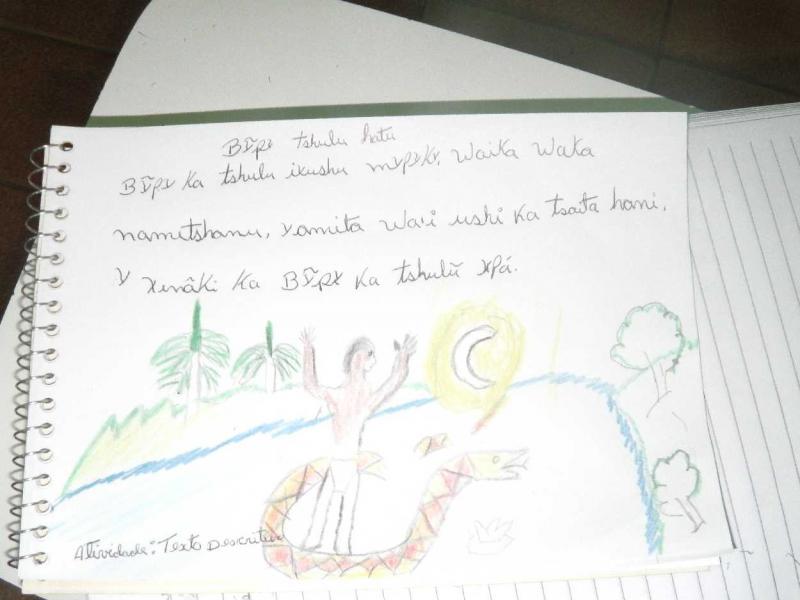 Bỹpy tshulu hatu
Bỹpy ka tshulu ikushu mypyky, waika waka
namitshanu, yamita wa'i ushi ka tsaita hani,
y xinâki ka Bỹpy ka tshulũ xpá.
Atividade: Texto Descritivo